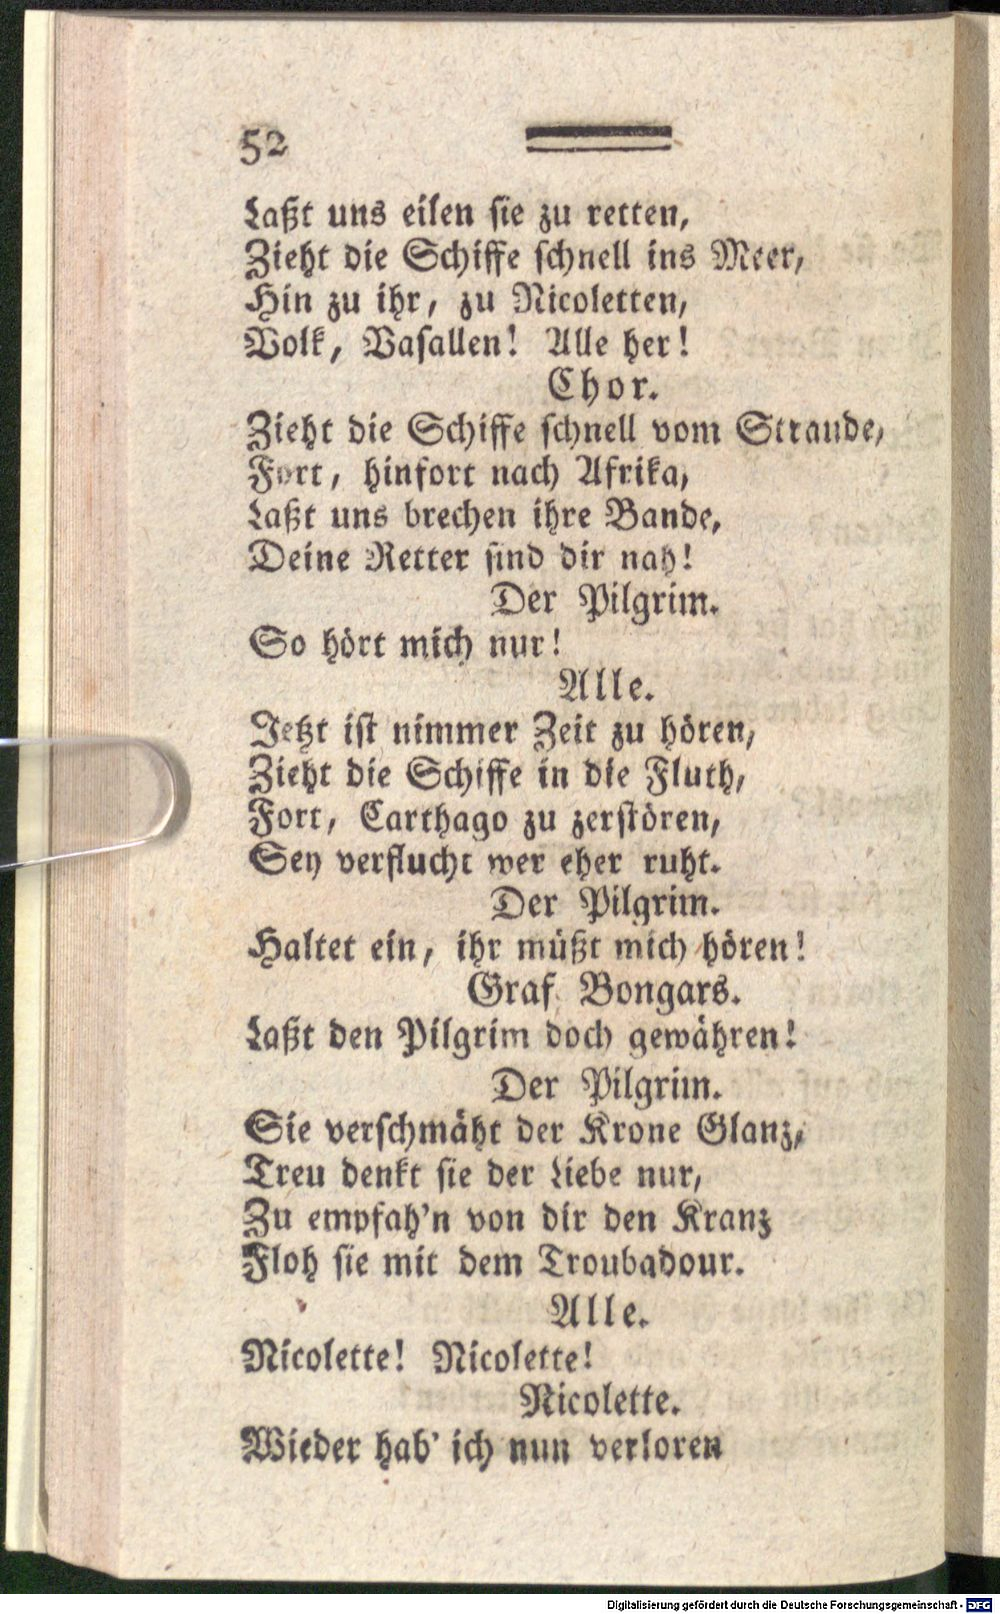 52
Laßt uns eilen sie zu retten,
Zieht die Schiffe schnell ins Meer,
Hin zu ihr, zu Nicoletten,
Volk, Vasallen! Alle her!
Chor.
Zieht die Schiffe schnell vom Strande,
Fort, hinfort nach Afrika,
Laßt uns brechen ihre Bande,
Deine Retter sind dir nah!
Der Pilgrim.
So hört mich nur!
Alle.
Jetzt ist nimmer Zeit zu hören,
Zieht die Schiffe in die Fluth,
Fort, Carthago zu zerstören,
Sey verflucht wer eher ruht.
Der Pilgrim.
Haltet ein, ihr müßt mich hören!
Graf Bongars.
Laßt den Pilgrim doch gewähren!
Der Pilgrim.
Sie verschmäht der Krone Glanz,
Treu denkt sie der Liebe nur,
Zu empfah'n von dir den Kranz
Floh sie mit dem Troubadour.
Alle.
Nicolette! Nicolette!
Nicolette.
Wieder hab' ich nun verloren
Digitalisierung gefördert durch die Deutsche Forschungsgemeinschaft - DFG